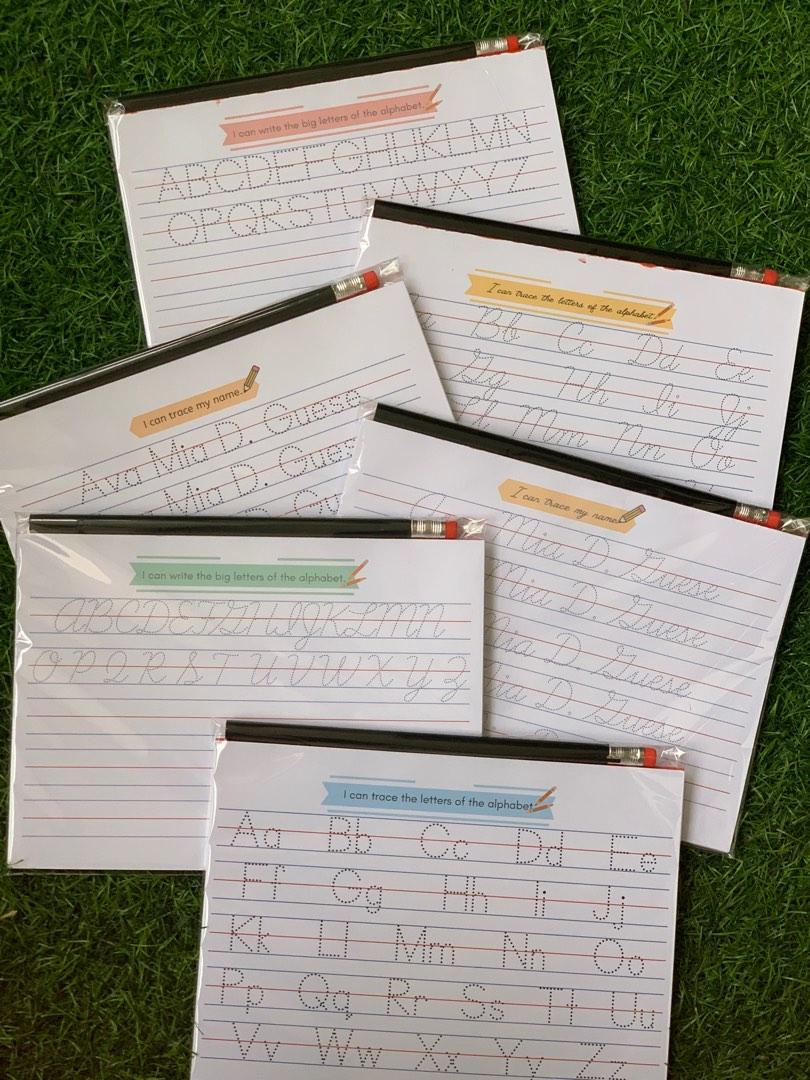 I can write the big letters of the alphabet.
ABCDEFGHIJKLMN
OPQRSTUVWXYZ
I can trace the letters of the alphabet.
Bb Cc Dd Ee
Gg Hh Ii Jj
Mm Nn Oo
I can trace my name.
Ava Mia D. Guese
Mia D. Guese
Mia D. Gu
I can trace my name.
Mia D. Guese
Mia D. Guese
Mia D. Guese
Mia D. Guese
I can write the big letters of the alphabet.
ABCDEFGHIJKLMN
OPQRSTUVWXYZ
I can trace the letters of the alphabet.
Aa Bb Cc Dd Ee
Ff Gg Hh Ii Jj
Kk Ll Mm Nn Oo
Pp Qq Rr Ss Tt Uu
Vv Ww Xx Yy Zz